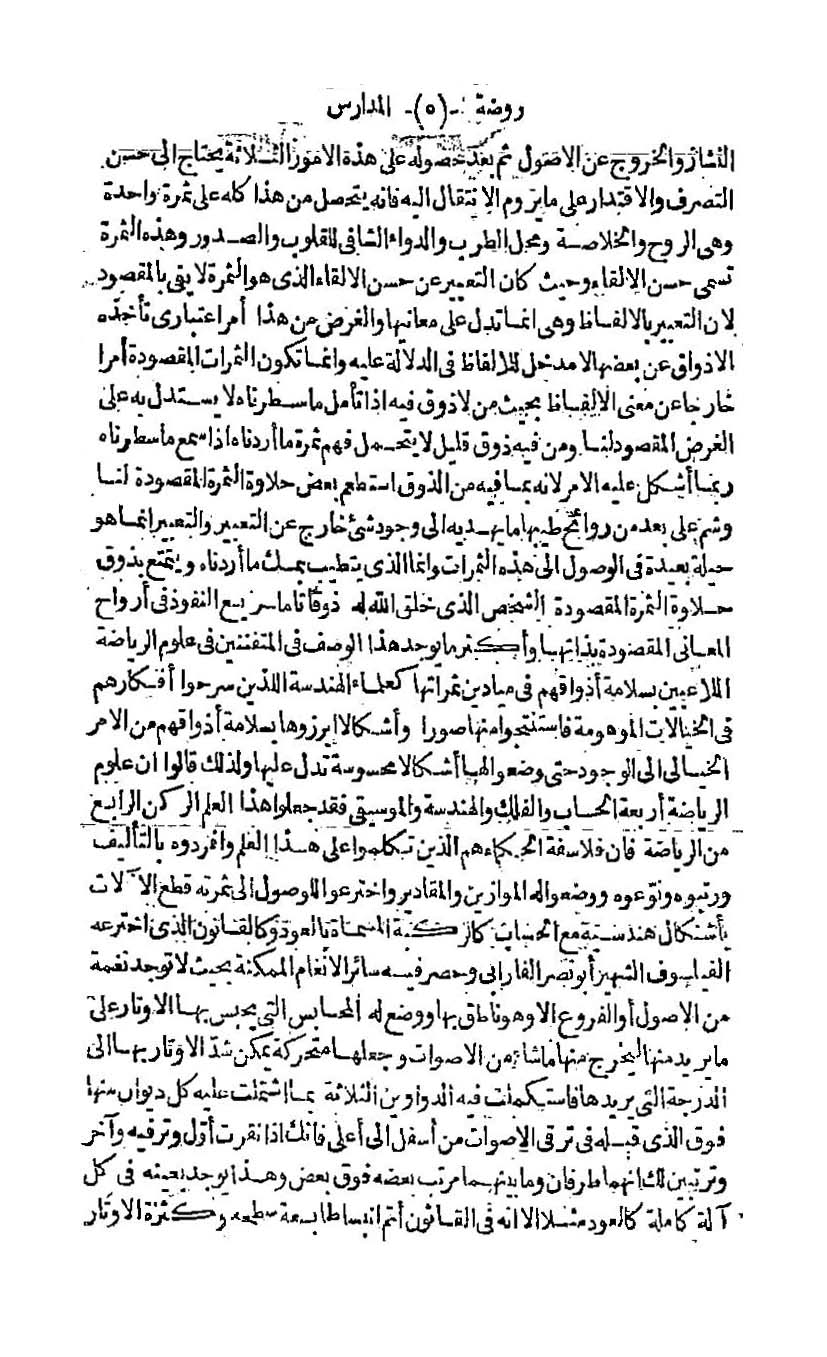 روضة -(٥)- المدارس
النشاز والخروج عن الاصول ثم بعد حصوله على هذه الامور الثلاثة يحتاج الى حسن
التصرف والاقتدار على ما يروم الانتقال اليه فانه يتحصل من هذا كله على ثمرة واحدة
وهى الروح والخلاصة ومجل الطرب والدواء الشافى للقلوب والصدور وهذه الثمرة
تسمى حسن الالقاء وحيث كان التعبير عن حسن الالقاء الذى هو الثمرة لا يفى بالمقصود
لان التعبير بالالفاظ وهى انما تدل على معانيها والغرض من هذا أمر اعتبارى تأخذه
الاذواق عن بعضها لا مدخل للالفاظ فى الدلالة عليه وانما تكون الثمرات المقصودة أمرا
خارجا عن معنى الالفاظ بحيث من لا ذوق فيه اذا تأمل ما سطرناه لا يستدل به على
الغرض المقصود لنا ومن فيه ذوق قليل لا يتحمل فهم ثمرة ما أردناه اذا سمع ما سطرناه
ربما أشكل عليه الامر لانه بما فيه من الذوق استطعم بعض حلاوة الثمرة المقصودة لنا
وشم على بعد من روائح طيبها ما يهديه الى وجود شئ خارج عن التعبير والتعبير انما هو
حيلة بعيدة فى الوصول الى هذه الثمرات وانما الذى يتطيب بمسك ما أردناه ويتمتع بذوق
حلاوة الثمرة المقصودة الشخص الذى خلق الله له ذوقا تاما سريع النفوذ فى أرواح
المعانى المقصودة بذاتها وأكثر ما يوجد هذا الوصف فى المتفننين فى علوم الرياضة
اللاعبين بسلامة أذواقهم فى ميادين ثمراتها كعلماء الهندسة اللذين سرحوا أفكارهم
فى الخيالات الموهومة فاستنتجوا منها صورا وأشكالا ابرزوها بسلامة أذواقهم من الامر
الخيالى الى الوجود حتى وضعوا لها أشكالا محسوسة تدل عليها ولذلك قالوا ان علوم
الرياضة أربعة الحساب والفلك والهندسة والموسيقى فقد جعلوا هذا العلم الركن الرابع
من الرياضة فان فلاسفة الحكماء هم الذين تكلموا على هذا العلم وافردوه بالتأليف
ورتبوه ونوعوه ووضعوا له الموازين والمقادير واخترعوا للوصول الى ثمرته قطع الآلات
بأشكال هندسية مع الحساب كالركبة المسماة بالعود وكالقانون الذى اخترعه
الفيلسوف الشهير أبو نصر الفارابى وحصر فيه سائر الانغام الممكنة بحيث لا توجد نغمة
من الاصول أو الفروع الا وهو ناطق بها ووضع له المحابس التى يحبس بها الاوتار على
ما يريد منها ليخرج منها ما شاء من الاصوات وجعلها متحركة يمكن شد الاوتار بها الى
الدرجة التى يريدها فاستكملت فيه الدواوين الثلاثة بما اشتملت عليه كل ديوان منها
فوق الذى قبله فى ترقى الاصوات من أسفل الى أعلى فانك اذا نقرت أول وتر فيه وآخر
وتر تبين لك انهما طرفان وما بينهما مرتب بعضه فوق بعض وهذا يوجد بعينه فى كل
آلة كاملة كالعود مثلا الا انه فى القانون أتم انبساطا بسعة سطحه وكثرة الاوتار